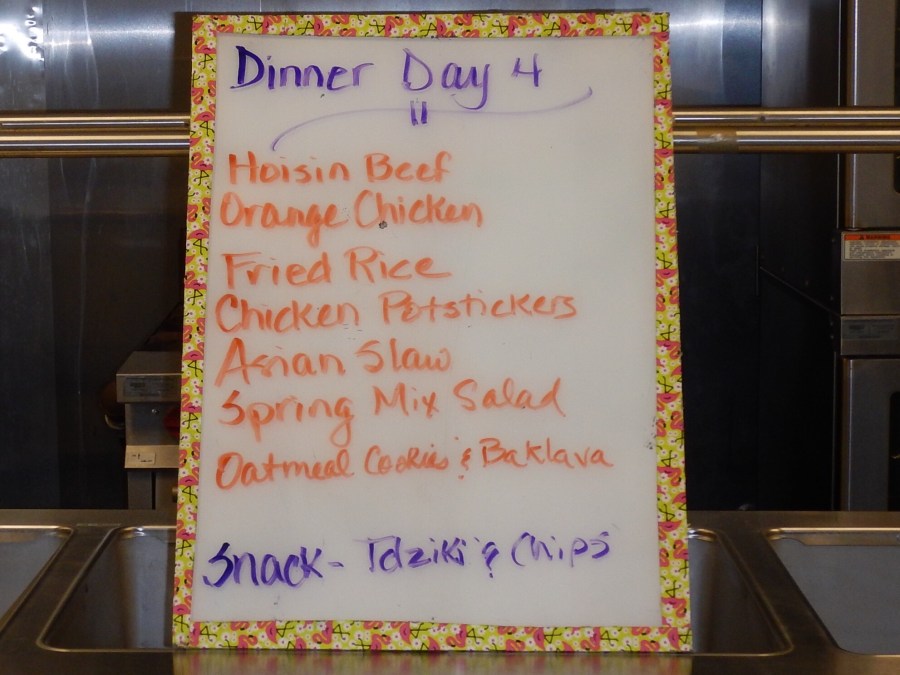 Dinner Day 4
Hoisin Beef
Orange Chicken
Fried Rice
Chicken Potstickers
Asian Slaw
Spring Mix Salad
Oatmeal Cookies & Baklava
Snack - Tdziki & Chips